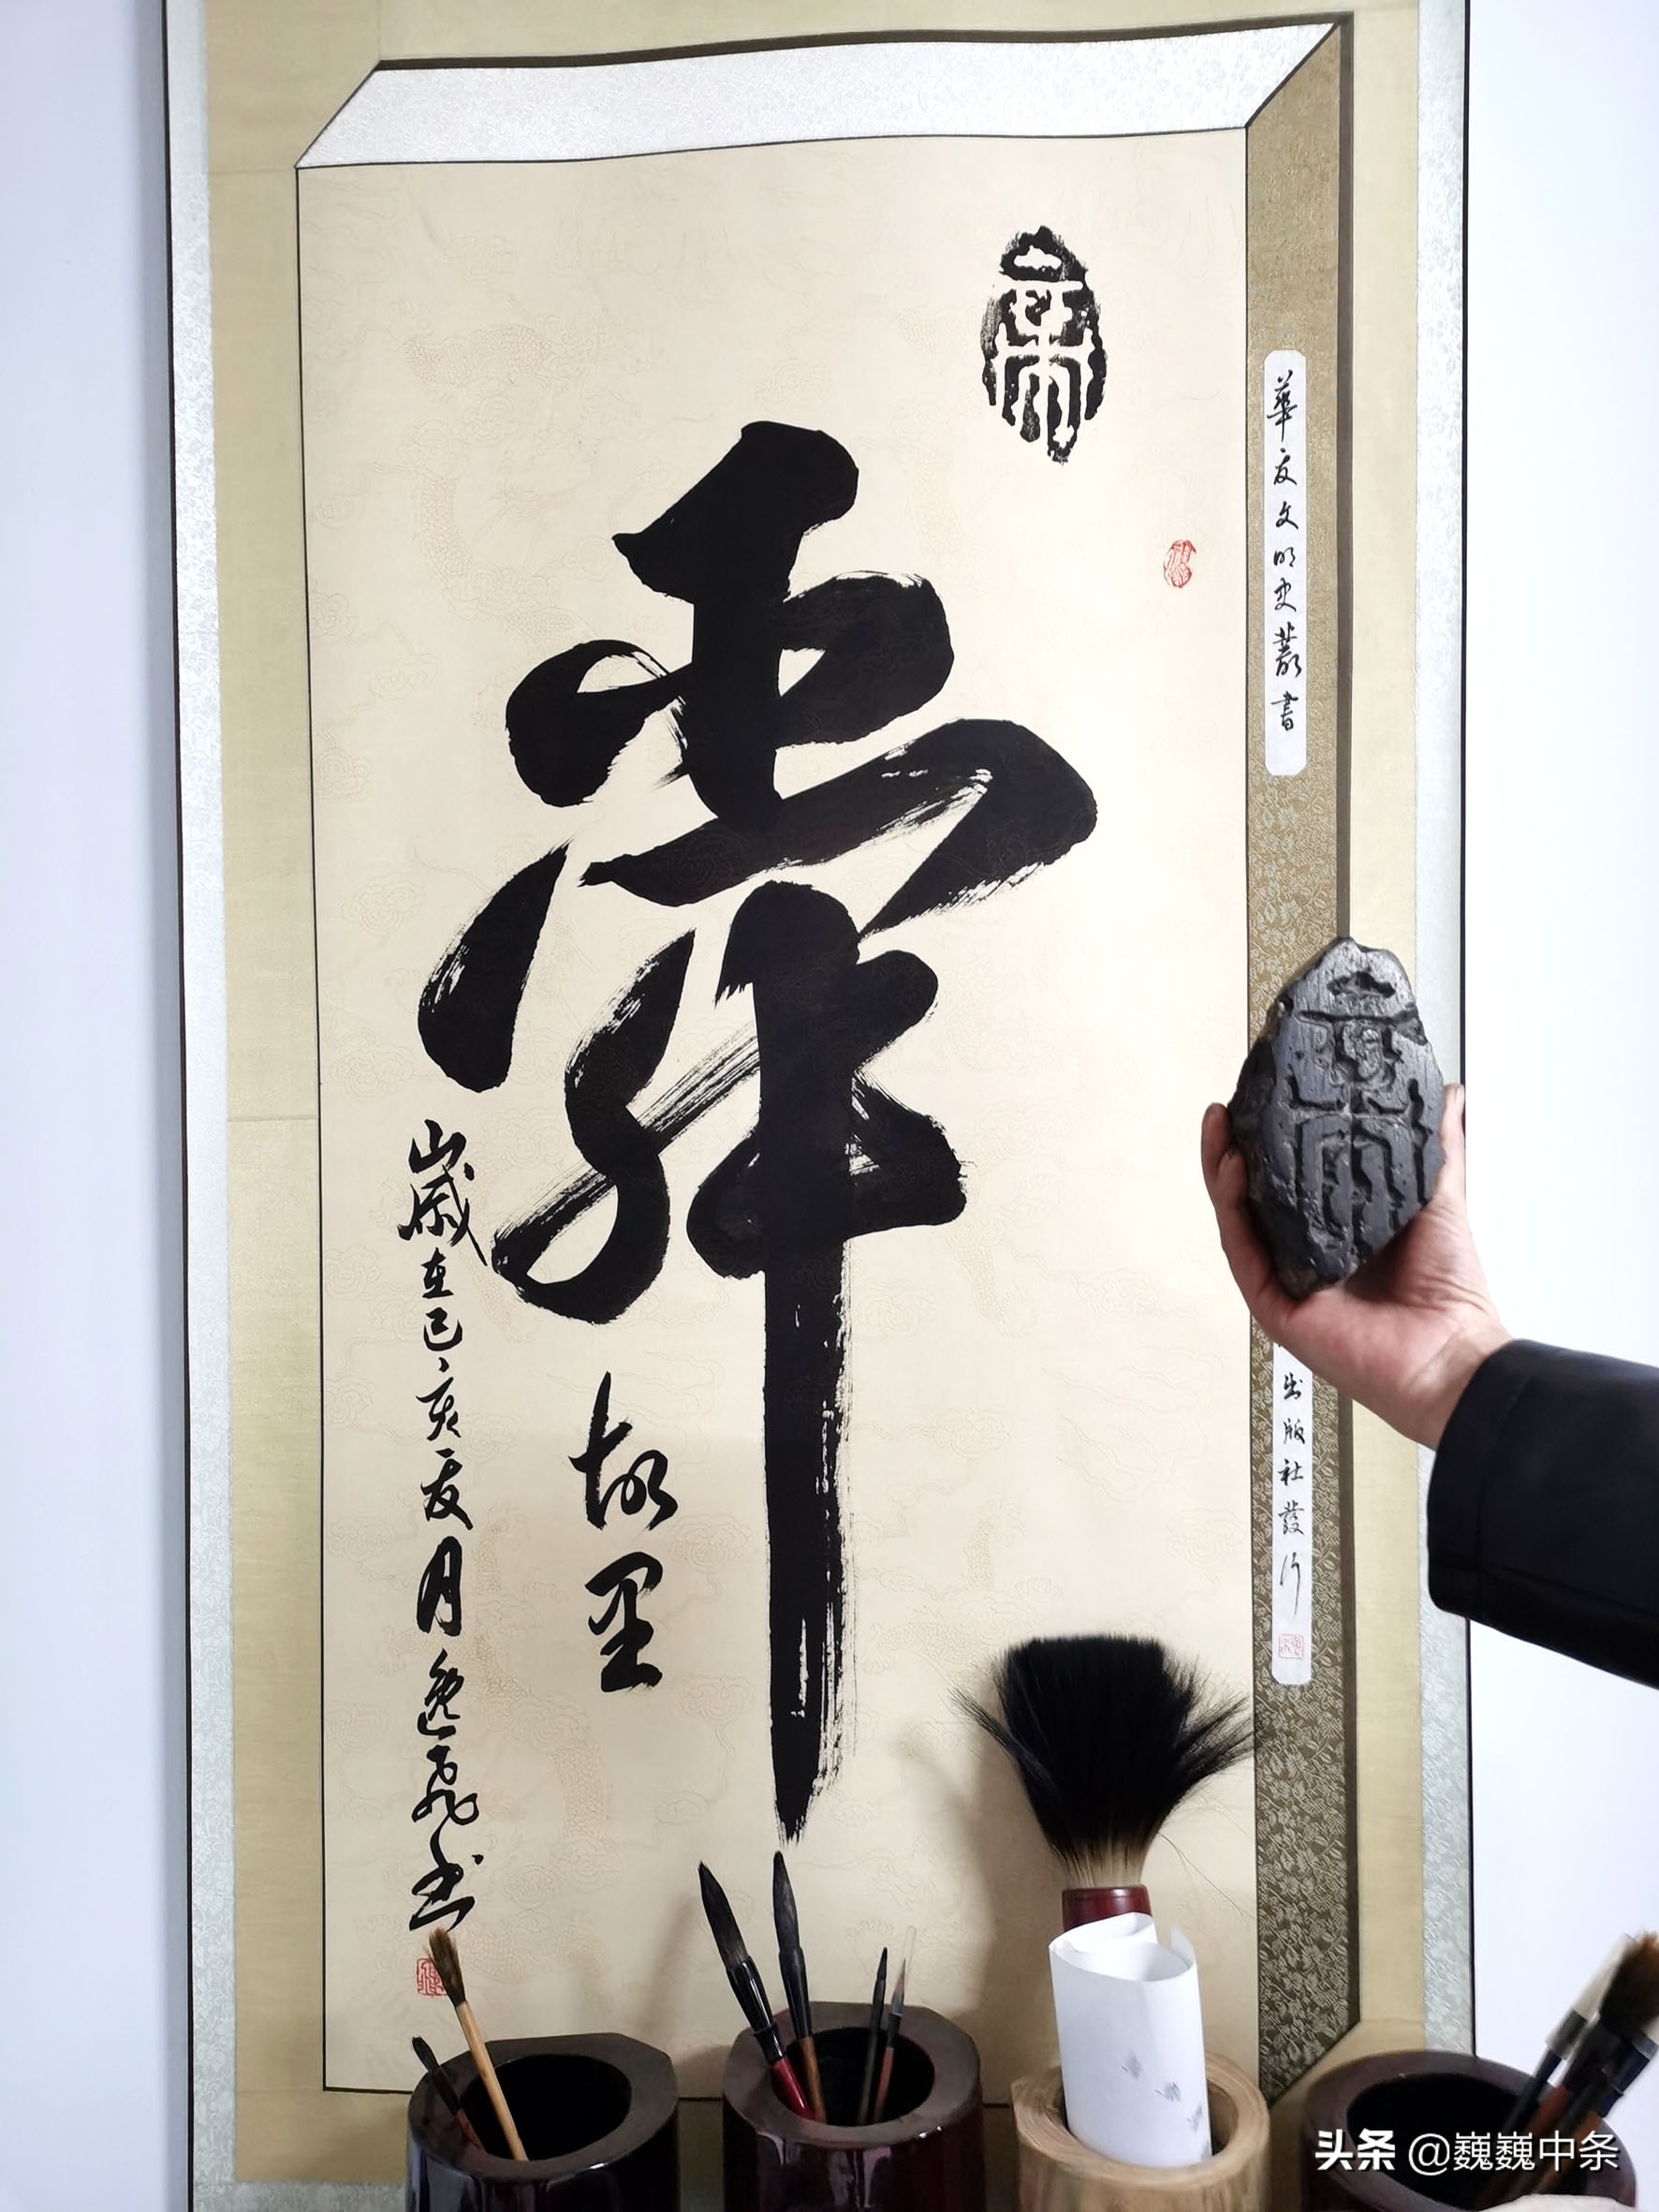 華夏文明史叢書
出版社發行
帝
舜
故里
歲在己亥夏月逸飛书
头条 @巍巍中条